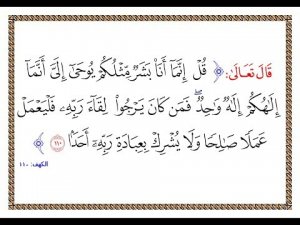 قَالَ تَعَالَىٰ: ﴿ قُلْ إِنَّمَآ أَنَا۠ بَشَرٌ مِّثْلُكُمْ يُوحَىٰٓ إِلَىَّ أَنَّمَآ
إِلَٰهُكُمْ إِلَٰهٌ وَٰحِدٌ ۖ فَمَن كَانَ يَرْجُوا۟ لِقَآءَ رَبِّهِۦ فَلْيَعْمَلْ
عَمَلًا صَٰلِحًا وَلَا يُشْرِكْ بِعِبَادَةِ رَبِّهِۦٓ أَحَدًۢا ١١٠ ﴾
الكهف: ١١٠